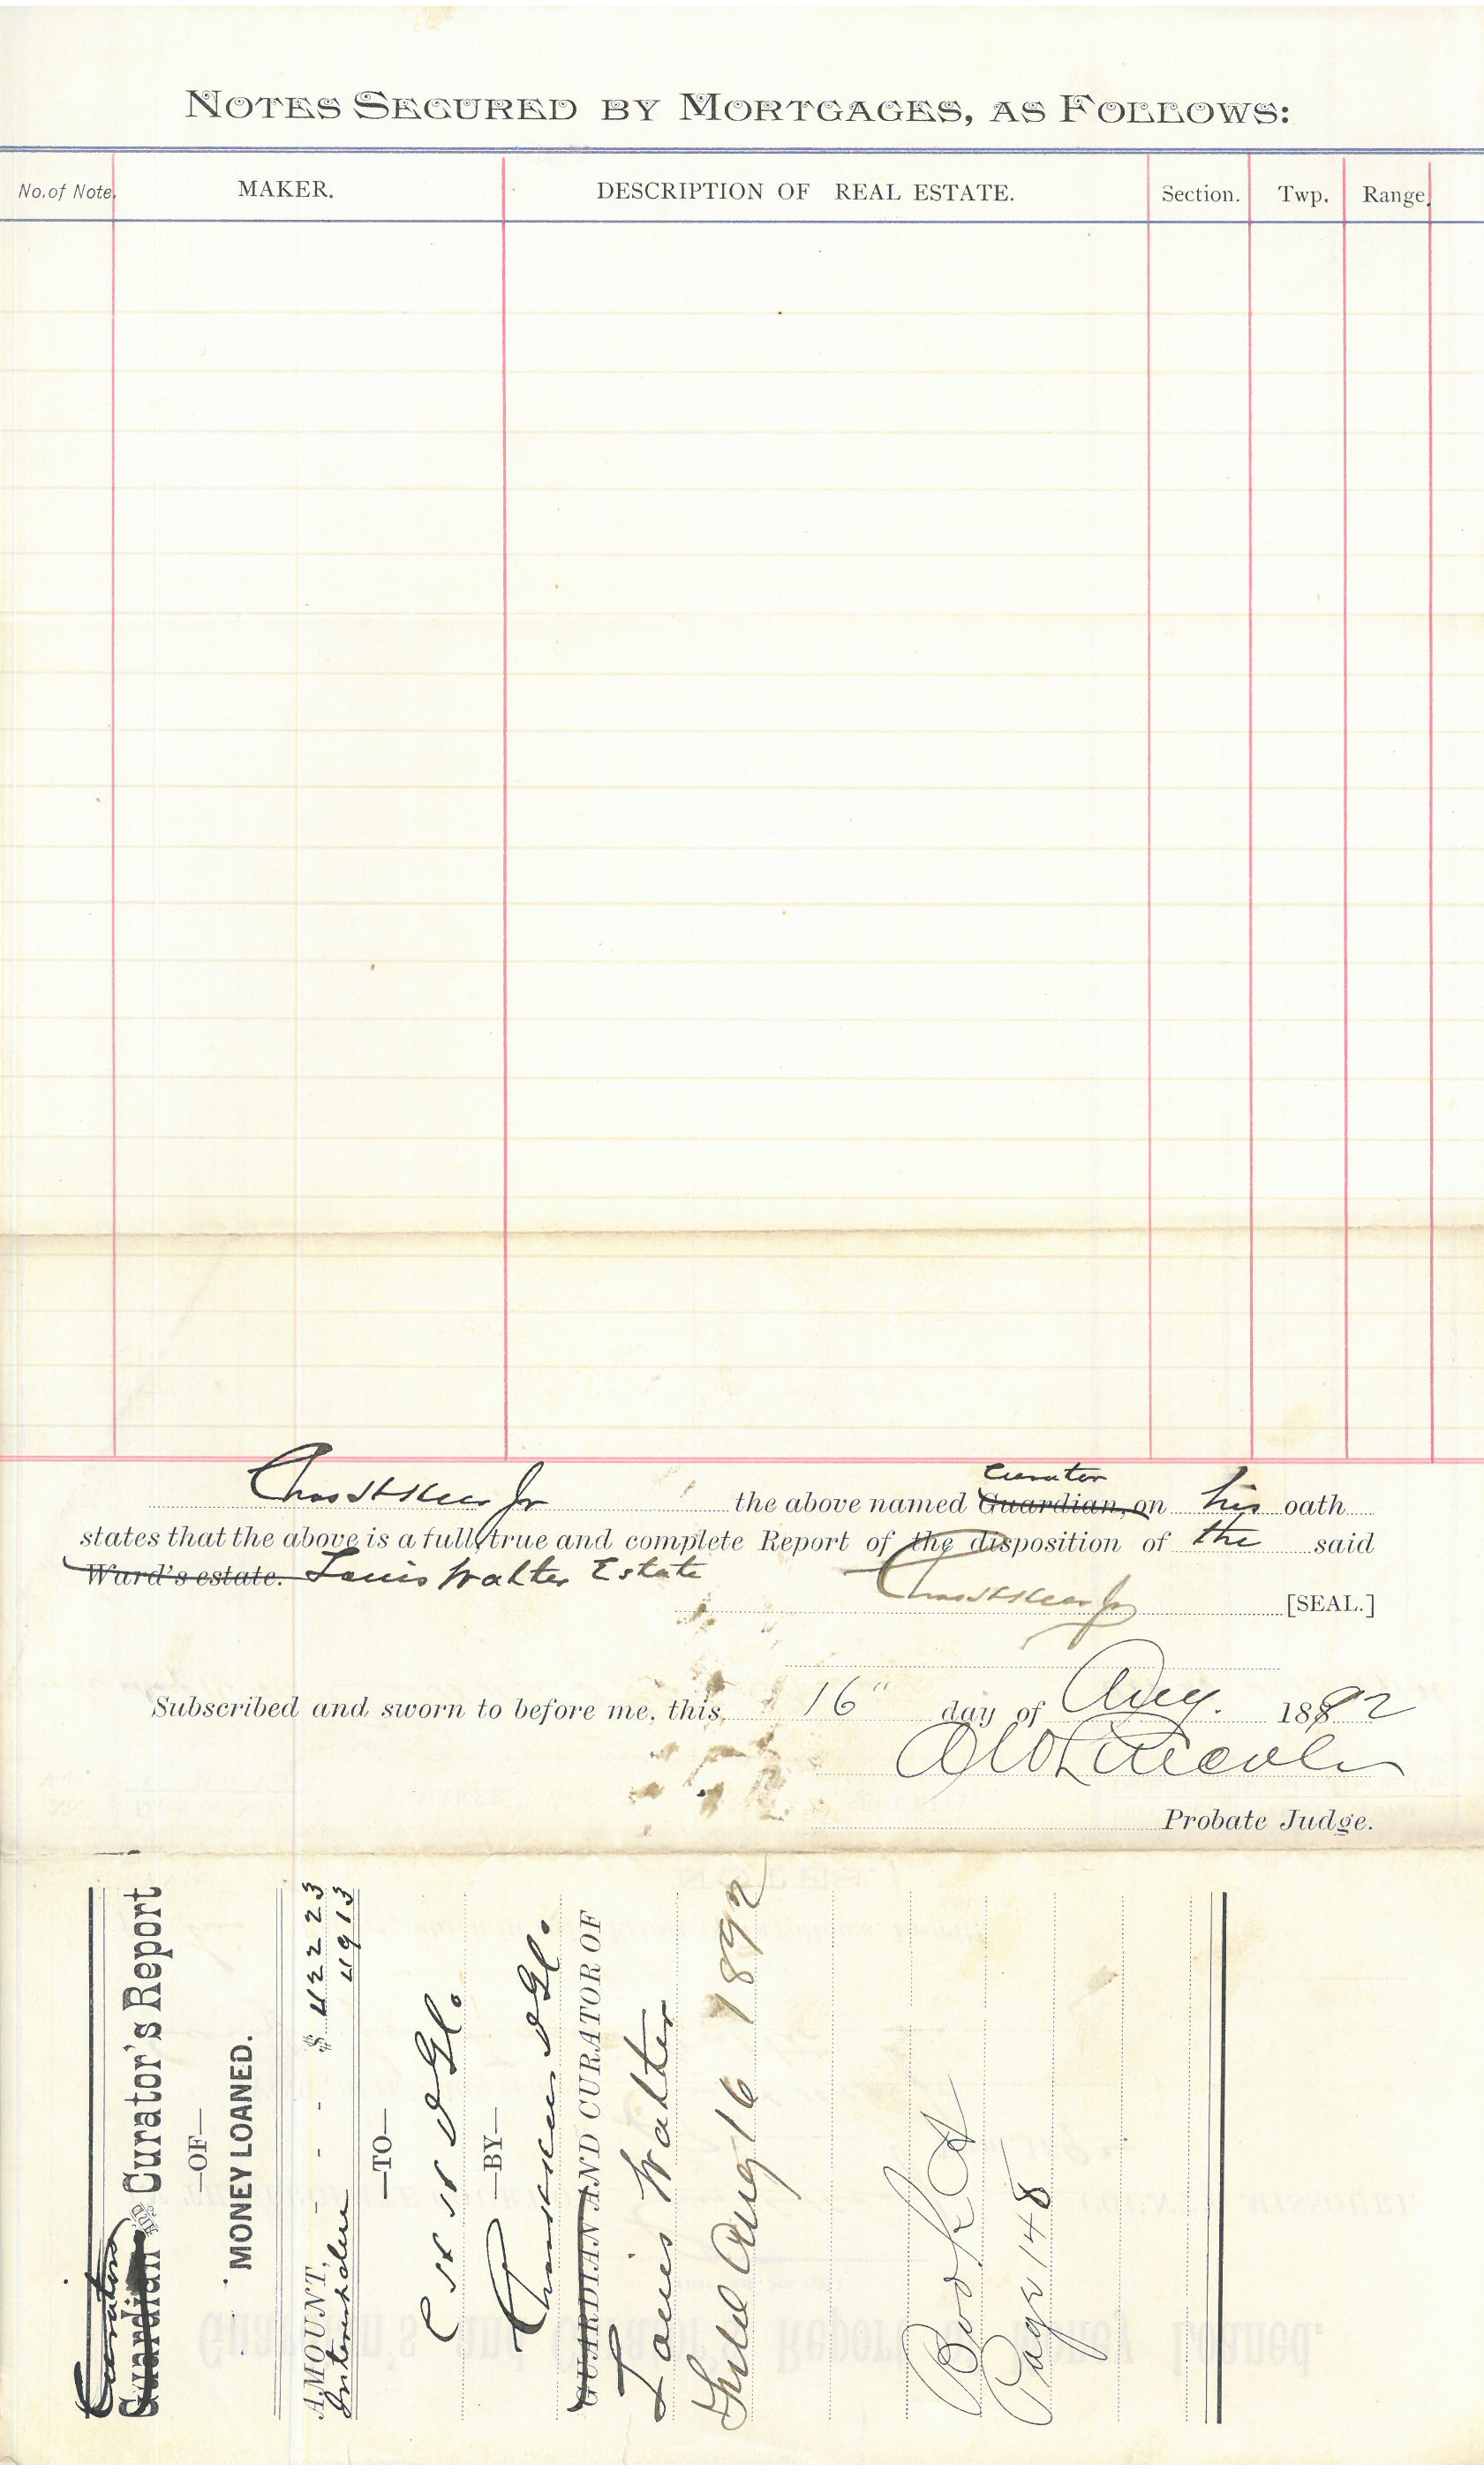 NOTES SECURED BY MORTGAGES, AS FOLLOWS:
No. of Note. MAKER. DESCRIPTION OF REAL ESTATE. Section. Twp. Range.
Jr the above named Guardian, on his oath
Curator
states that the above is a full, true and complete Report of the disposition of the said
Ward's estate. Louis Walter Estate
Jr [SEAL.]
Subscribed and sworn to before me, this 16" day of Aug. 1892
Probate Judge.
Guardian & Curator's Report
—OF—
MONEY LOANED.
AMOUNT, - - - $ 422 23
49 13
—TO—
—BY—
GUARDIAN AND CURATOR OF
Louis Walter
Filed Aug 16 1892
Book
Page 148